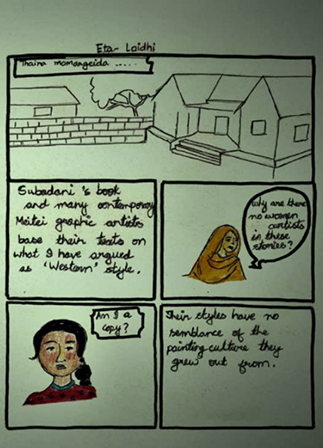 Eta- Laidhi
Thaina mamangeida .....
Subadani's book
and many contemporary
Meitei graphic artists
base their texts on
what I have argued
as 'Western' style.
Why are there
no women
artists
in these
stories?
Am I a
copy?
Their styles have no
semblance of the
painting culture they
grew out from.